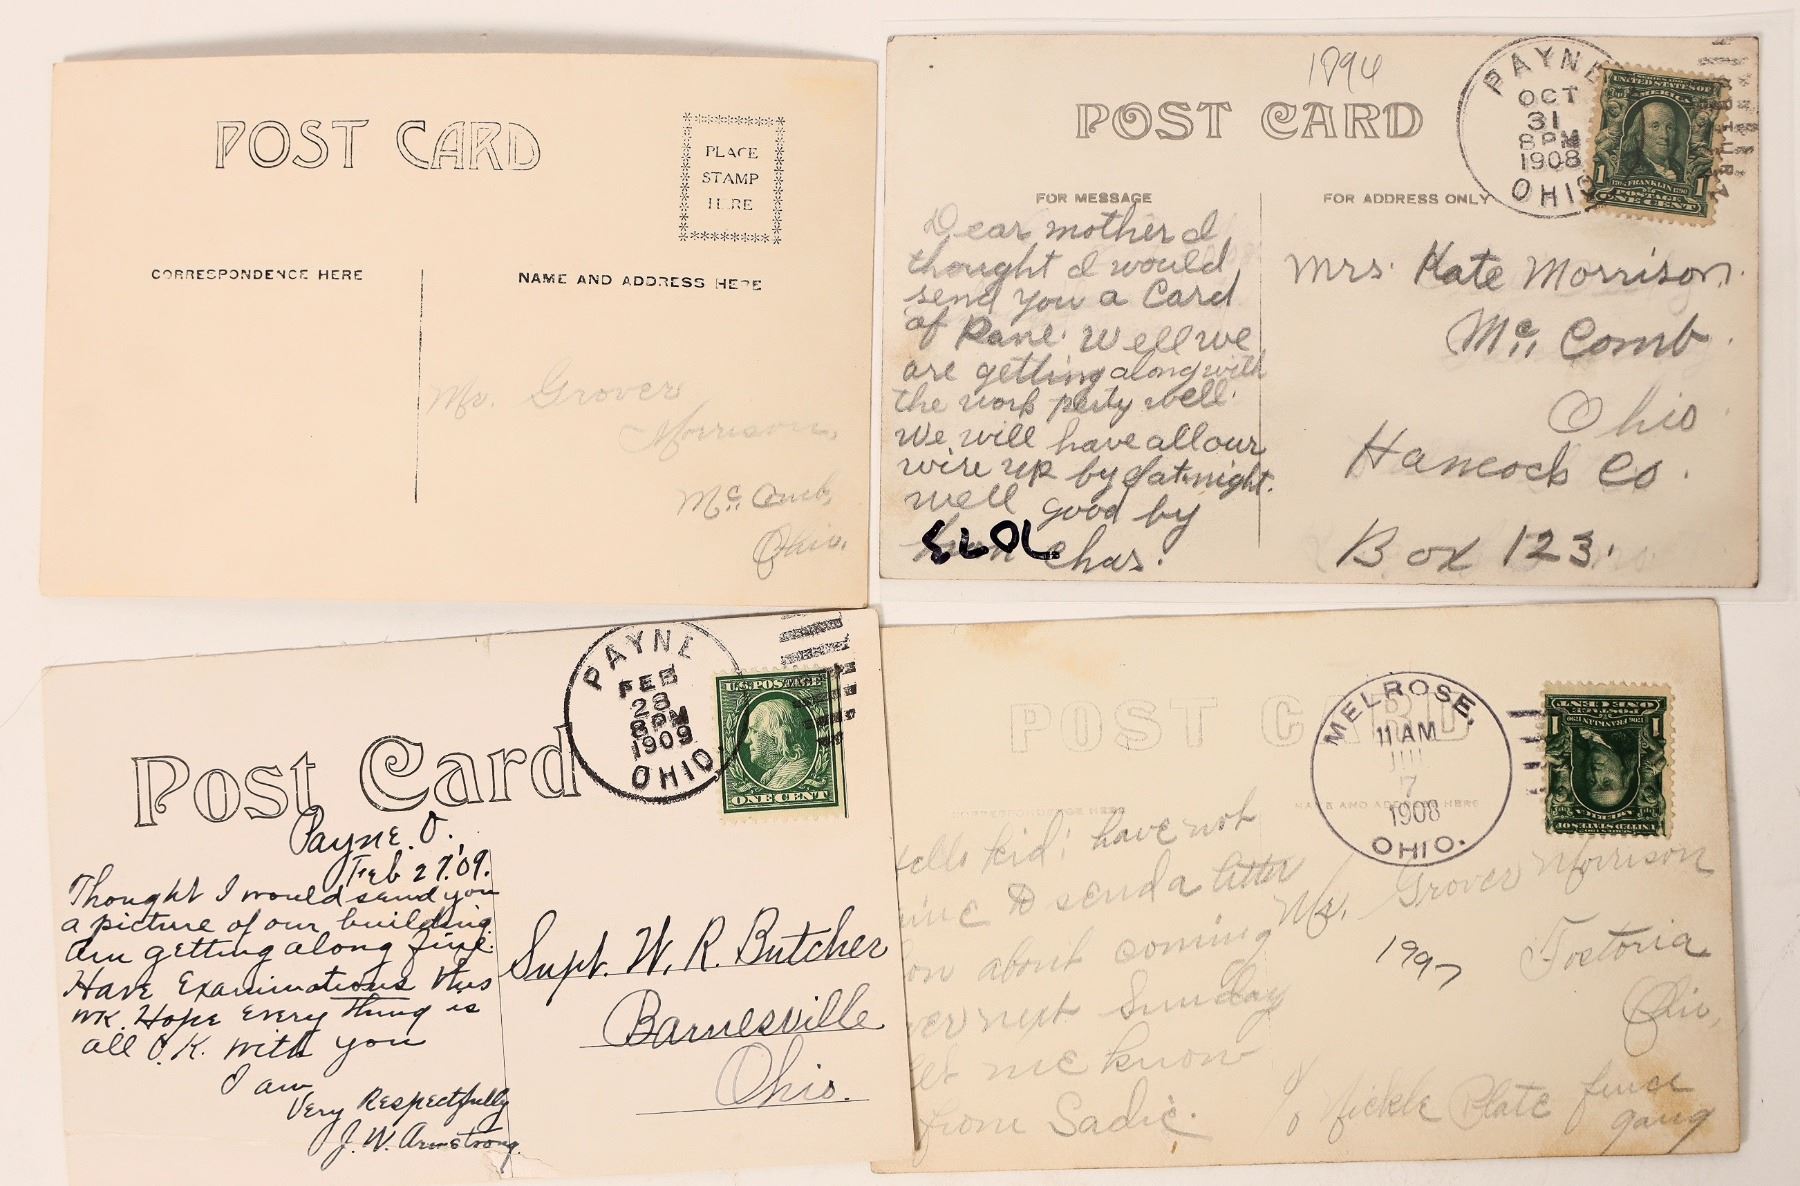 POST CARD
PLACE
STAMP
HERE
CORRESPONDENCE HERE
NAME AND ADDRESS HERE
Mr. Grover
Morrison,
Mc Comb,
Ohio.
1894
POST CARD
PAYNE
OCT
31
8 PM
1908
OHIO
UNITED STATES OF
AMERICA
1 FRANKLIN 1
POSTAGE
ONE CENT
FOR MESSAGE
FOR ADDRESS ONLY
Dear mother I
thought I would
send you a Card
of Pane. Well we
are getting along with
the work purty well.
We will have all our
wire up by Sat. night.
well good by
from Chas.
Mrs. Kate Morrison.
Mc Comb.
Ohio.
Hancock Co.
Box 123.
PAYNE
FEB
28
8 PM
1909
OHIO.
U.S. POSTAGE
ONE CENT
Post Card
Payne. O.,
Feb 27, '09.
Thought I would send you
a picture of our building.
Am getting along fine.
Have Examinations this
wk. Hope Every thing is
all O.K. with you
I am
Very Respectfully
J. W. Armstrong.
Supt. W. R. Butcher
Barnesville
Ohio.
POST CARD
MELROSE,
11 AM
JUL
7
1908
OHIO.
UNITED STATES OF
AMERICA
1 FRANKLIN 1
POSTAGE
ONE CENT
CORRESPONDENCE HERE
NAME AND ADDRESS HERE
kid; have not
to send a letter
about coming
next Sunday
let me know
from Sadie.
Mr. Grover Morrison
1997
Fostoria
Ohio,
c/o Nickle Plate fence
gang